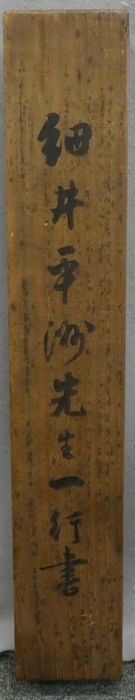 細井平洲先生一行書